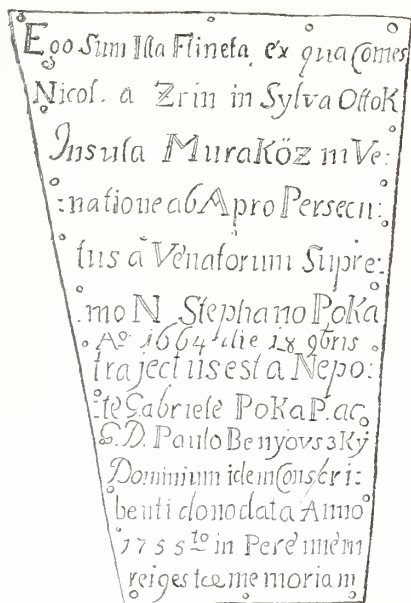 Ego Sum Illa Flineta, ex qua Comes
Nicol. a Zrin in Sylva Ottok
Insula Muraköz in Ve:
:natione ab Apro Persecu:
tus a Venatorum Supre:
mo N Stephano Poka
Aº 1664 die 18 9bris
trajectus est a Nepo:
:te Gabriele Poka P. ac
G. D. Paulo Benyovszky
Dominium idem Conscri:
benti dono data Anno
1755to in Perennem
rei gestae memoriam